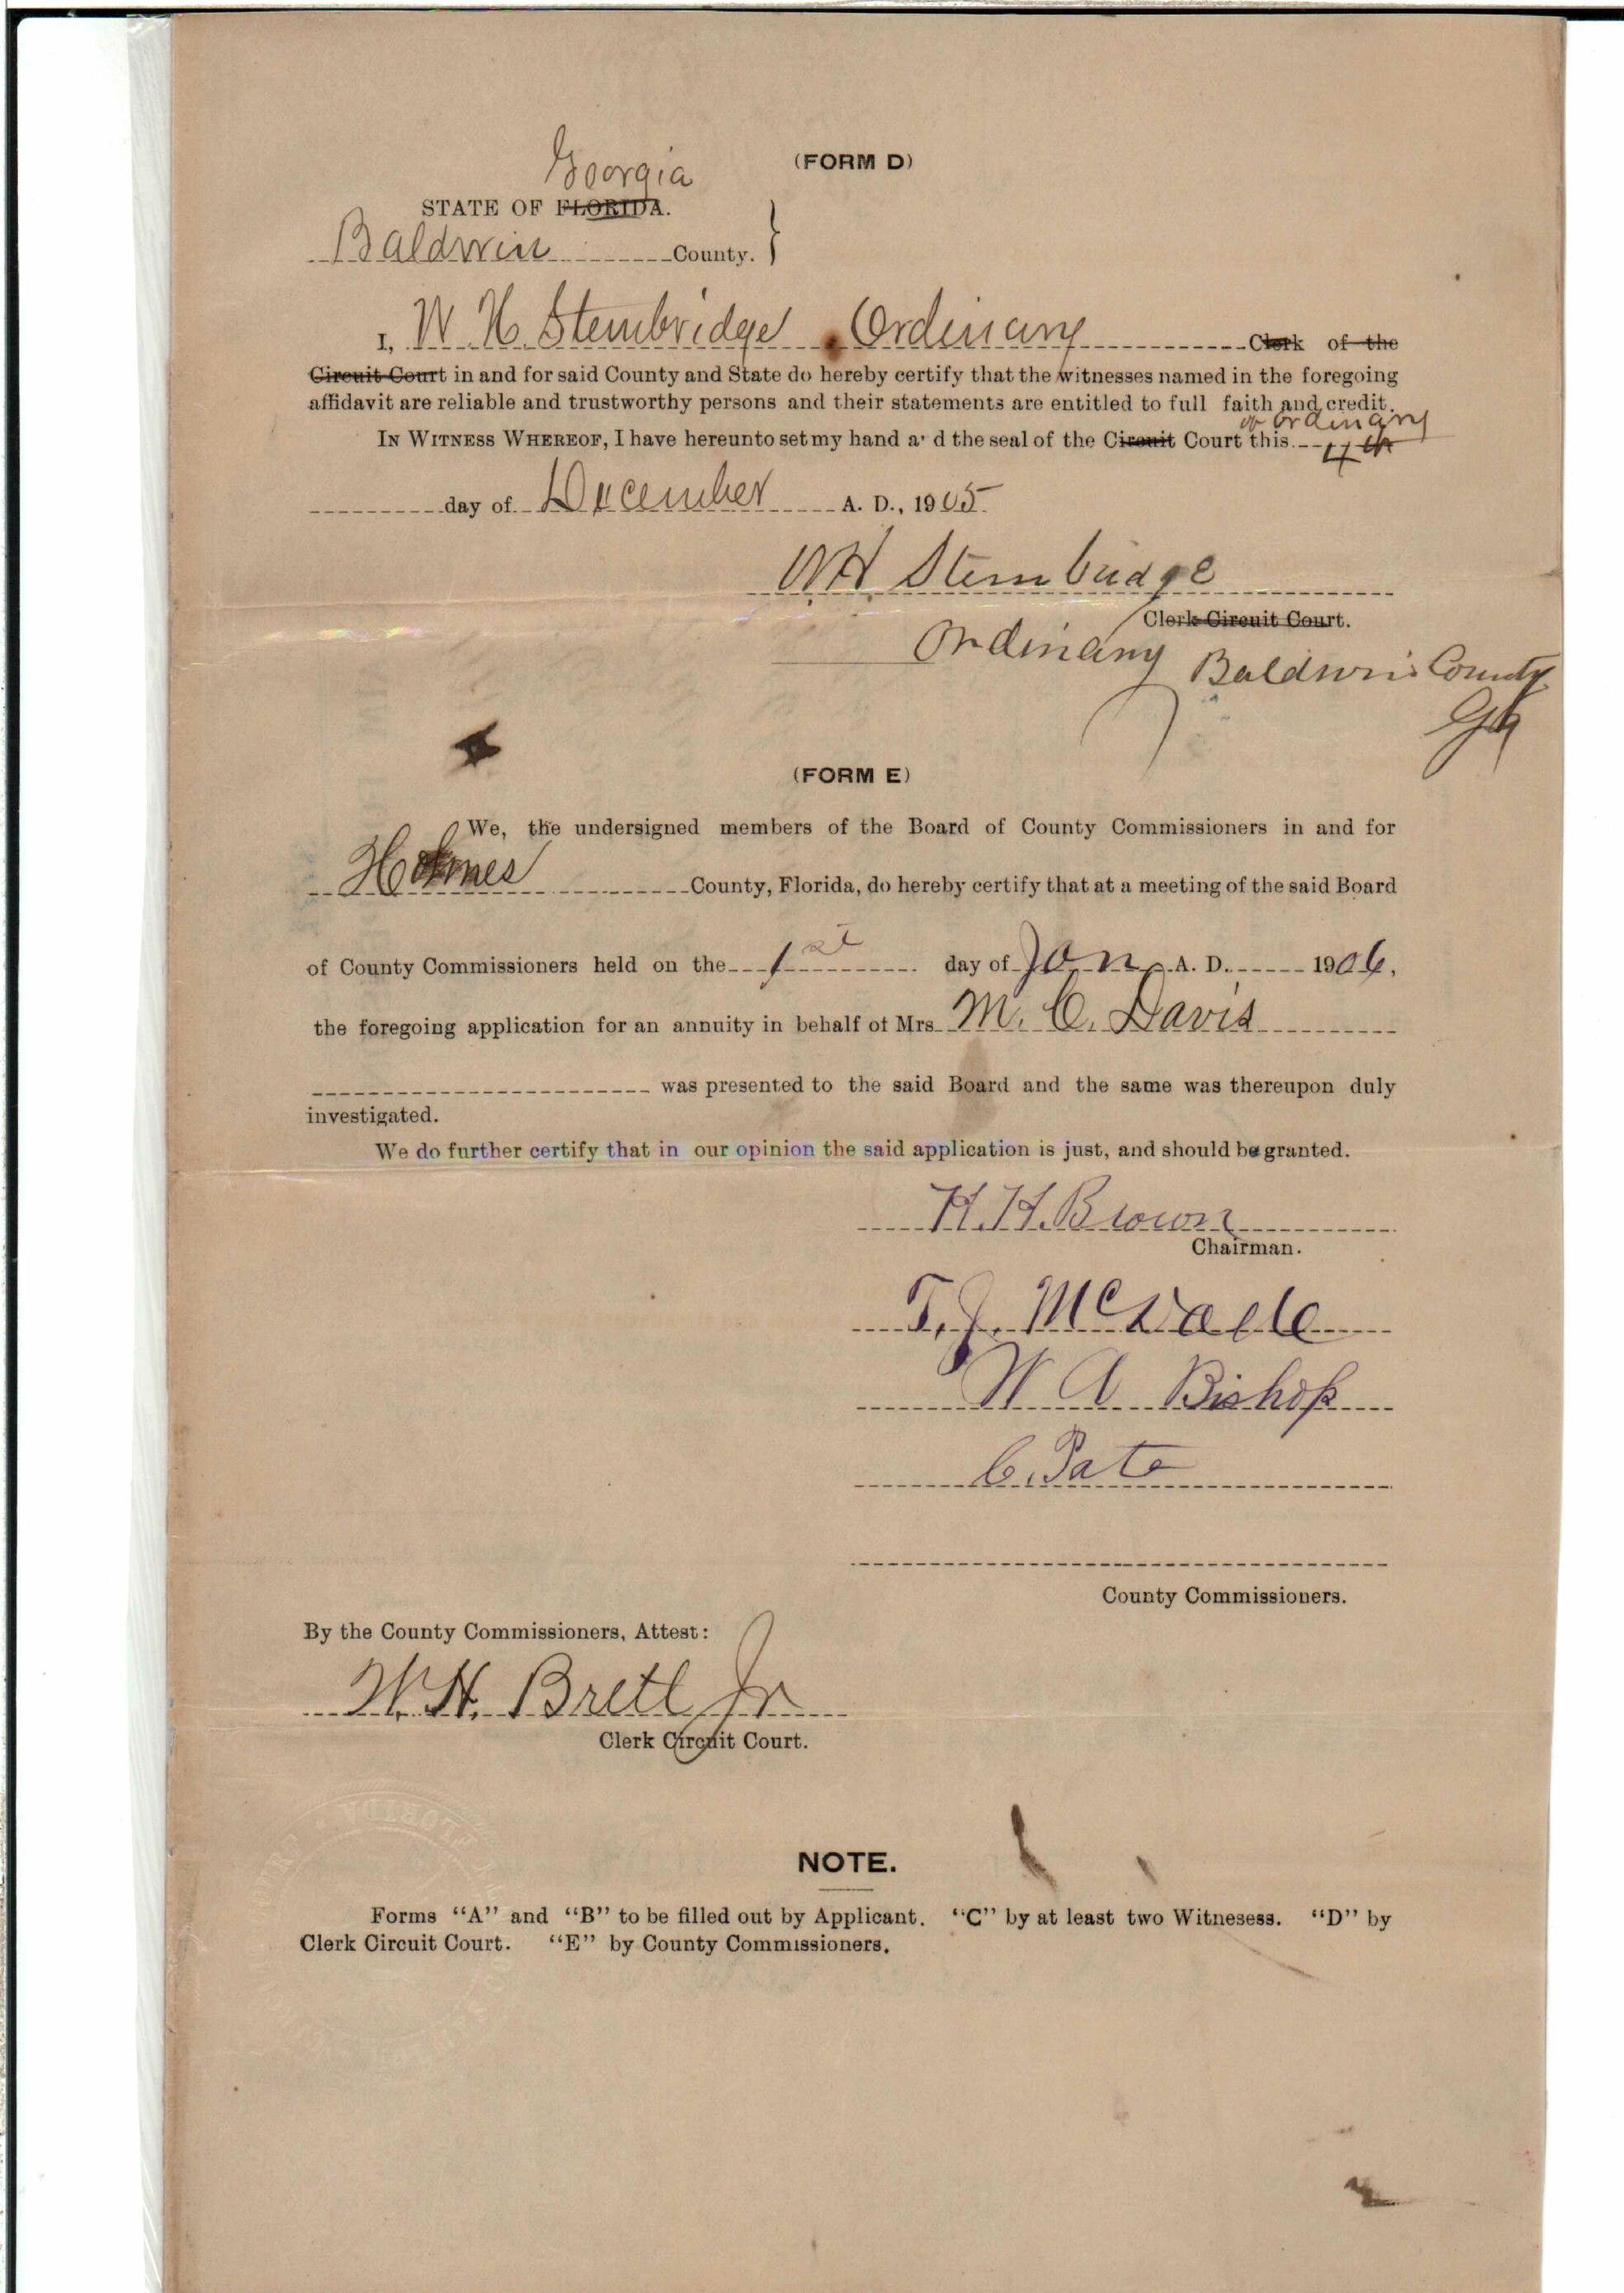 (FORM D)
Georgia
STATE OF FLORIDA.
Baldwin County.
I, W H Stembridge Ordinary Clerk of the
Circuit Court in and for said County and State do hereby certify that the witnesses named in the foregoing
affidavit are reliable and trustworthy persons and their statements are entitled to full faith and credit.
of ordinary
IN WITNESS WHEREOF, I have hereunto set my hand a d the seal of the Circuit Court this 4th
day of December A. D., 1905
W H Stembridge
Clerk Circuit Court.
Ordinary Baldwin County
Ga
(FORM E)
We, the undersigned members of the Board of County Commissioners in and for
Holmes County, Florida, do hereby certify that at a meeting of the said Board
of County Commissioners held on the 1st day of Jan A. D. 1906,
the foregoing application for an annuity in behalf of Mrs M. C. Davis
was presented to the said Board and the same was thereupon duly
investigated.
We do further certify that in our opinion the said application is just, and should be granted.
H. H. Brown
Chairman.
T. J. McDade
W A Bishop
C. Pate
County Commissioners.
By the County Commissioners, Attest:
W. H. Brett Jr
Clerk Circuit Court.
NOTE.
Forms "A" and "B" to be filled out by Applicant. "C" by at least two Witnesess. "D" by
Clerk Circuit Court. "E" by County Commissioners.